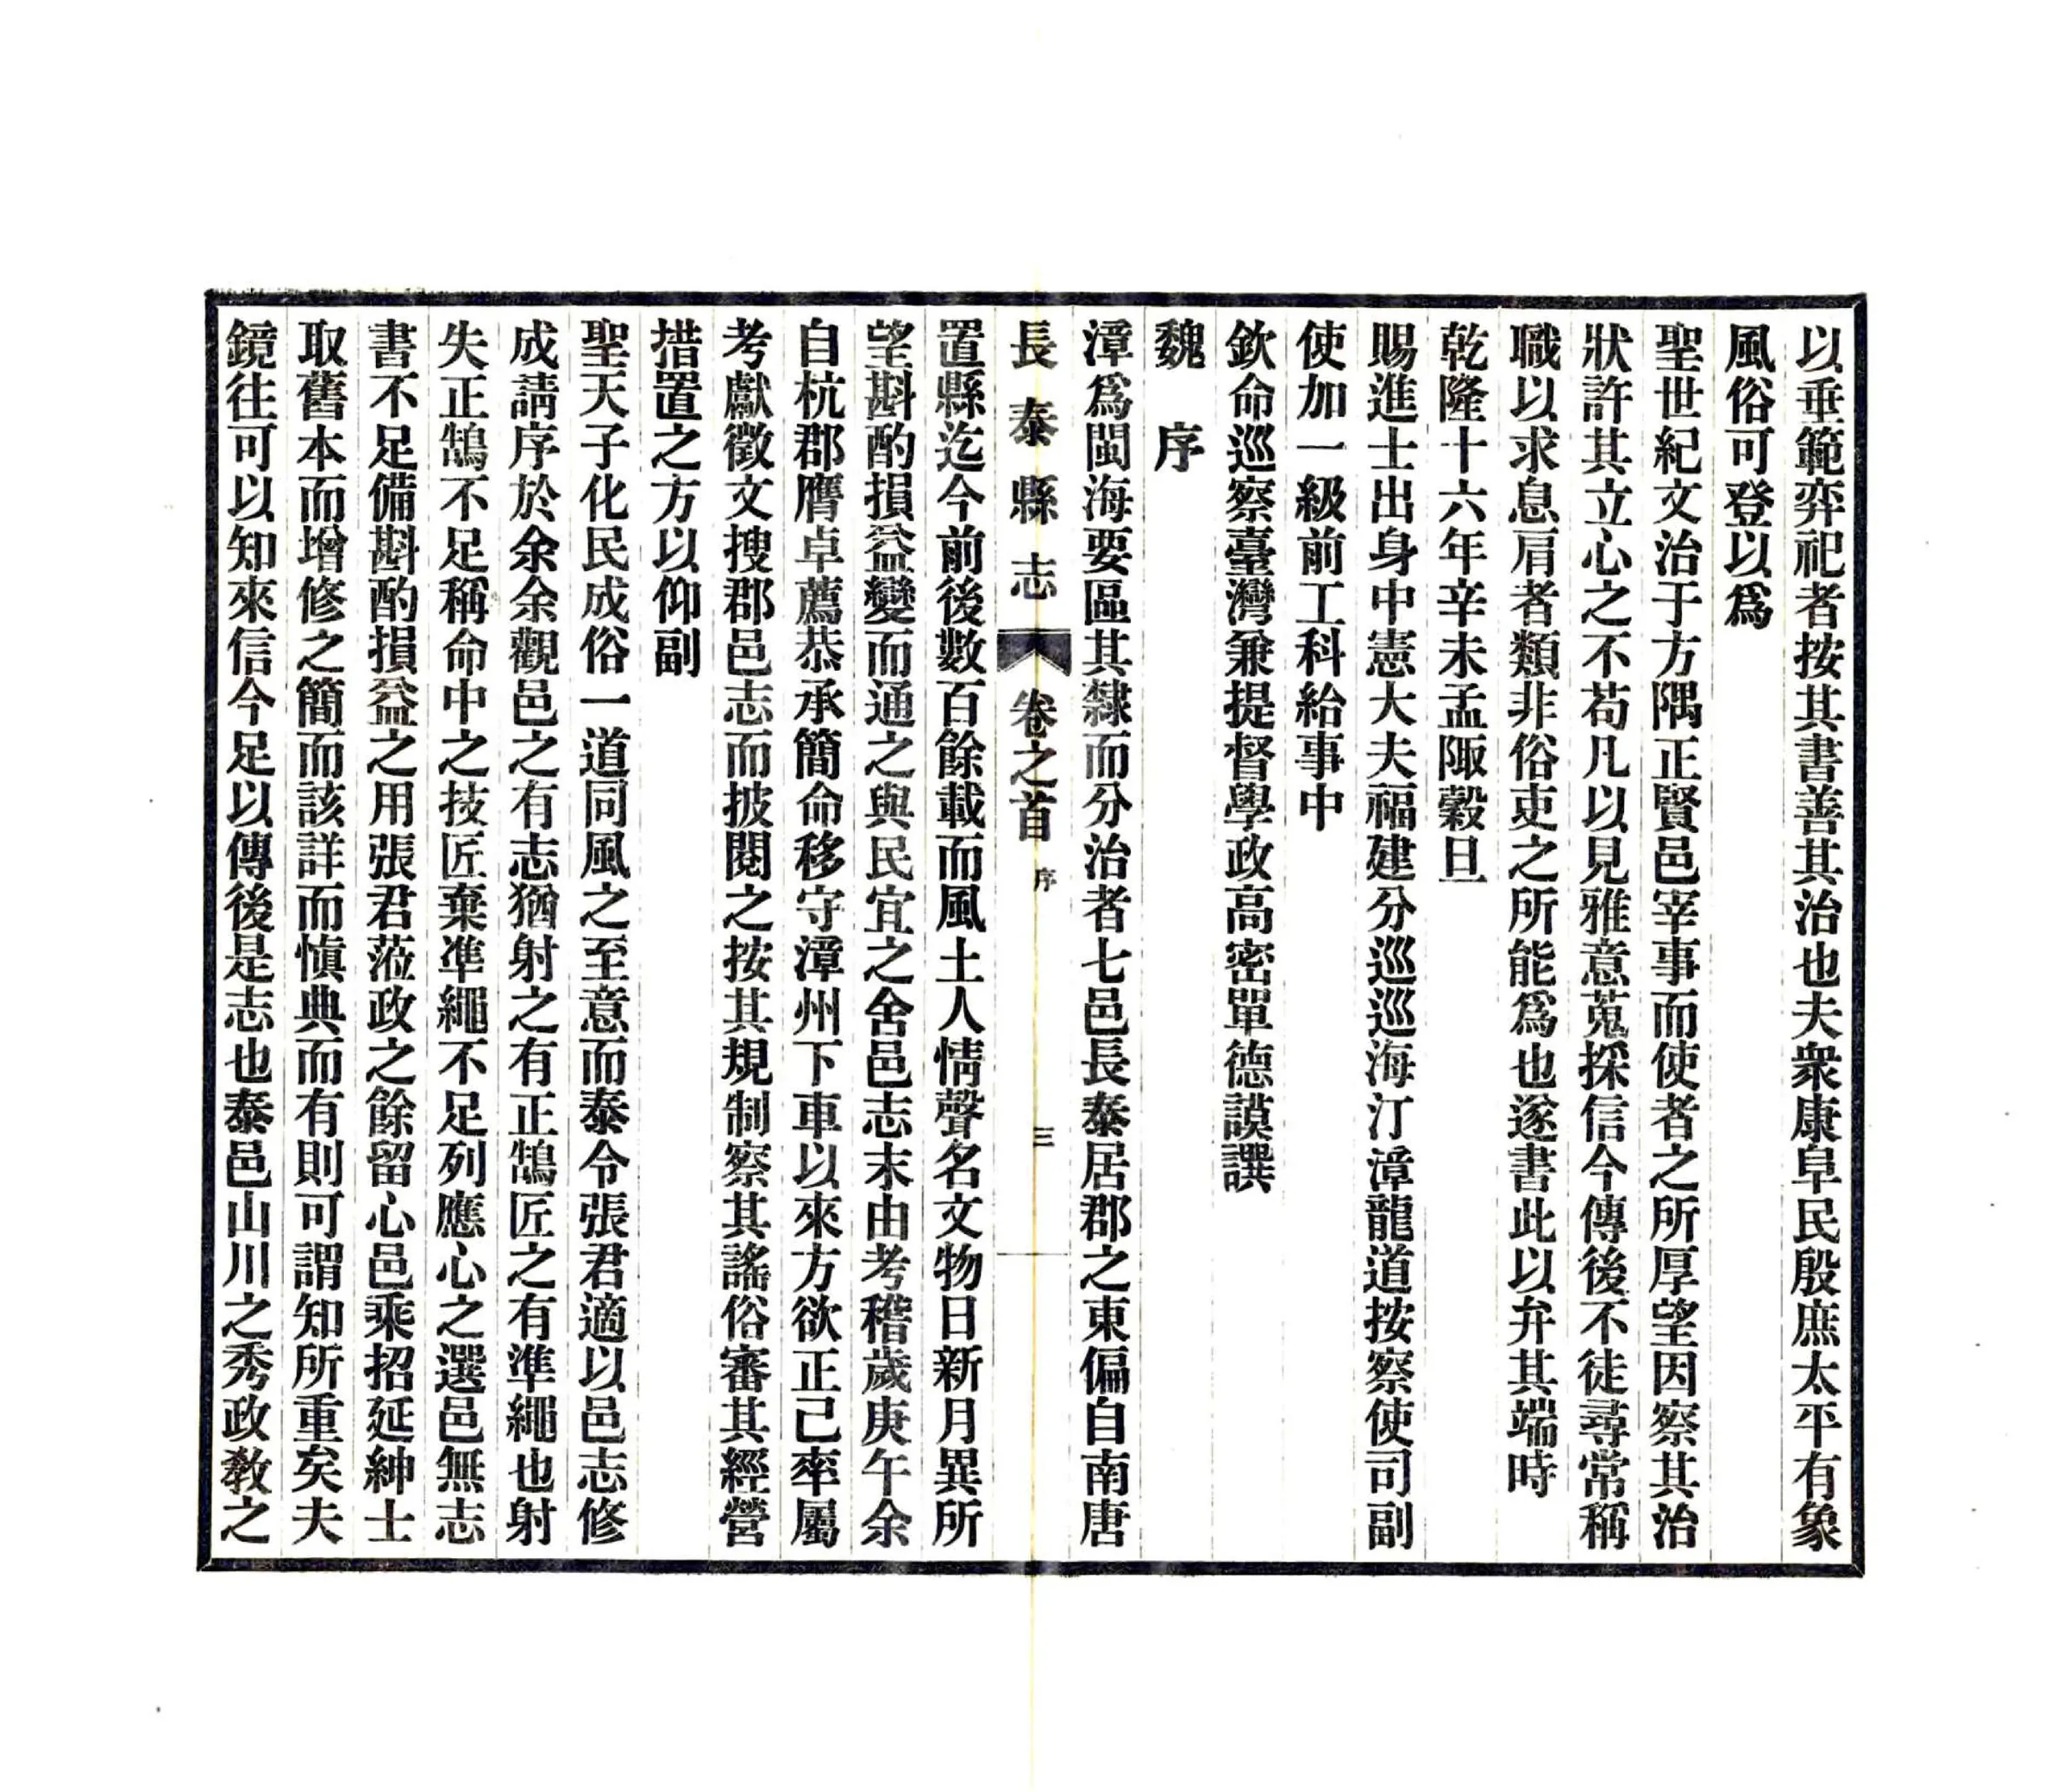 以垂範弈祀者按其書善其治也夫衆康阜民殷庶太平有象
風俗可登以爲
聖世紀文治于方隅正賢邑宰事而使者之所厚望因察其治
狀許其立心之不苟凡以見雅意蒐採信今傳後不徒尋常稱
職以求息肩者類非俗吏之所能爲也遂書此以弁其端時
乾隆十六年辛未孟陬穀旦
賜進士出身中憲大夫福建分巡巡海汀漳龍道按察使司副
使加一級前工科給事中
欽命巡察臺灣兼提督學政高密單德謨譔
魏　序
漳爲閩海要區其隸而分治者七邑長泰居郡之東偏自南唐
長泰縣志　卷之首　序　三
置縣迄今前後數百餘載而風土人情聲名文物日新月異所
望斟酌損益變而通之與民宜之舍邑志末由考稽歲庚午余
自杭郡膺卓薦恭承簡命移守漳州下車以來方欲正己率屬
考獻徵文搜郡邑志而披閱之按其規制察其謠俗審其經營
措置之方以仰副
聖天子化民成俗一道同風之至意而泰令張君適以邑志修
成請序於余余觀邑之有志猶射之有正鵠匠之有準繩也射
失正鵠不足稱命中之技匠棄準繩不足列應心之選邑無志
書不足備斟酌損益之用張君蒞政之餘留心邑乘招延紳士
取舊本而增修之簡而該詳而愼典而有則可謂知所重矣夫
鏡往可以知來信今足以傳後是志也泰邑山川之秀政敎之